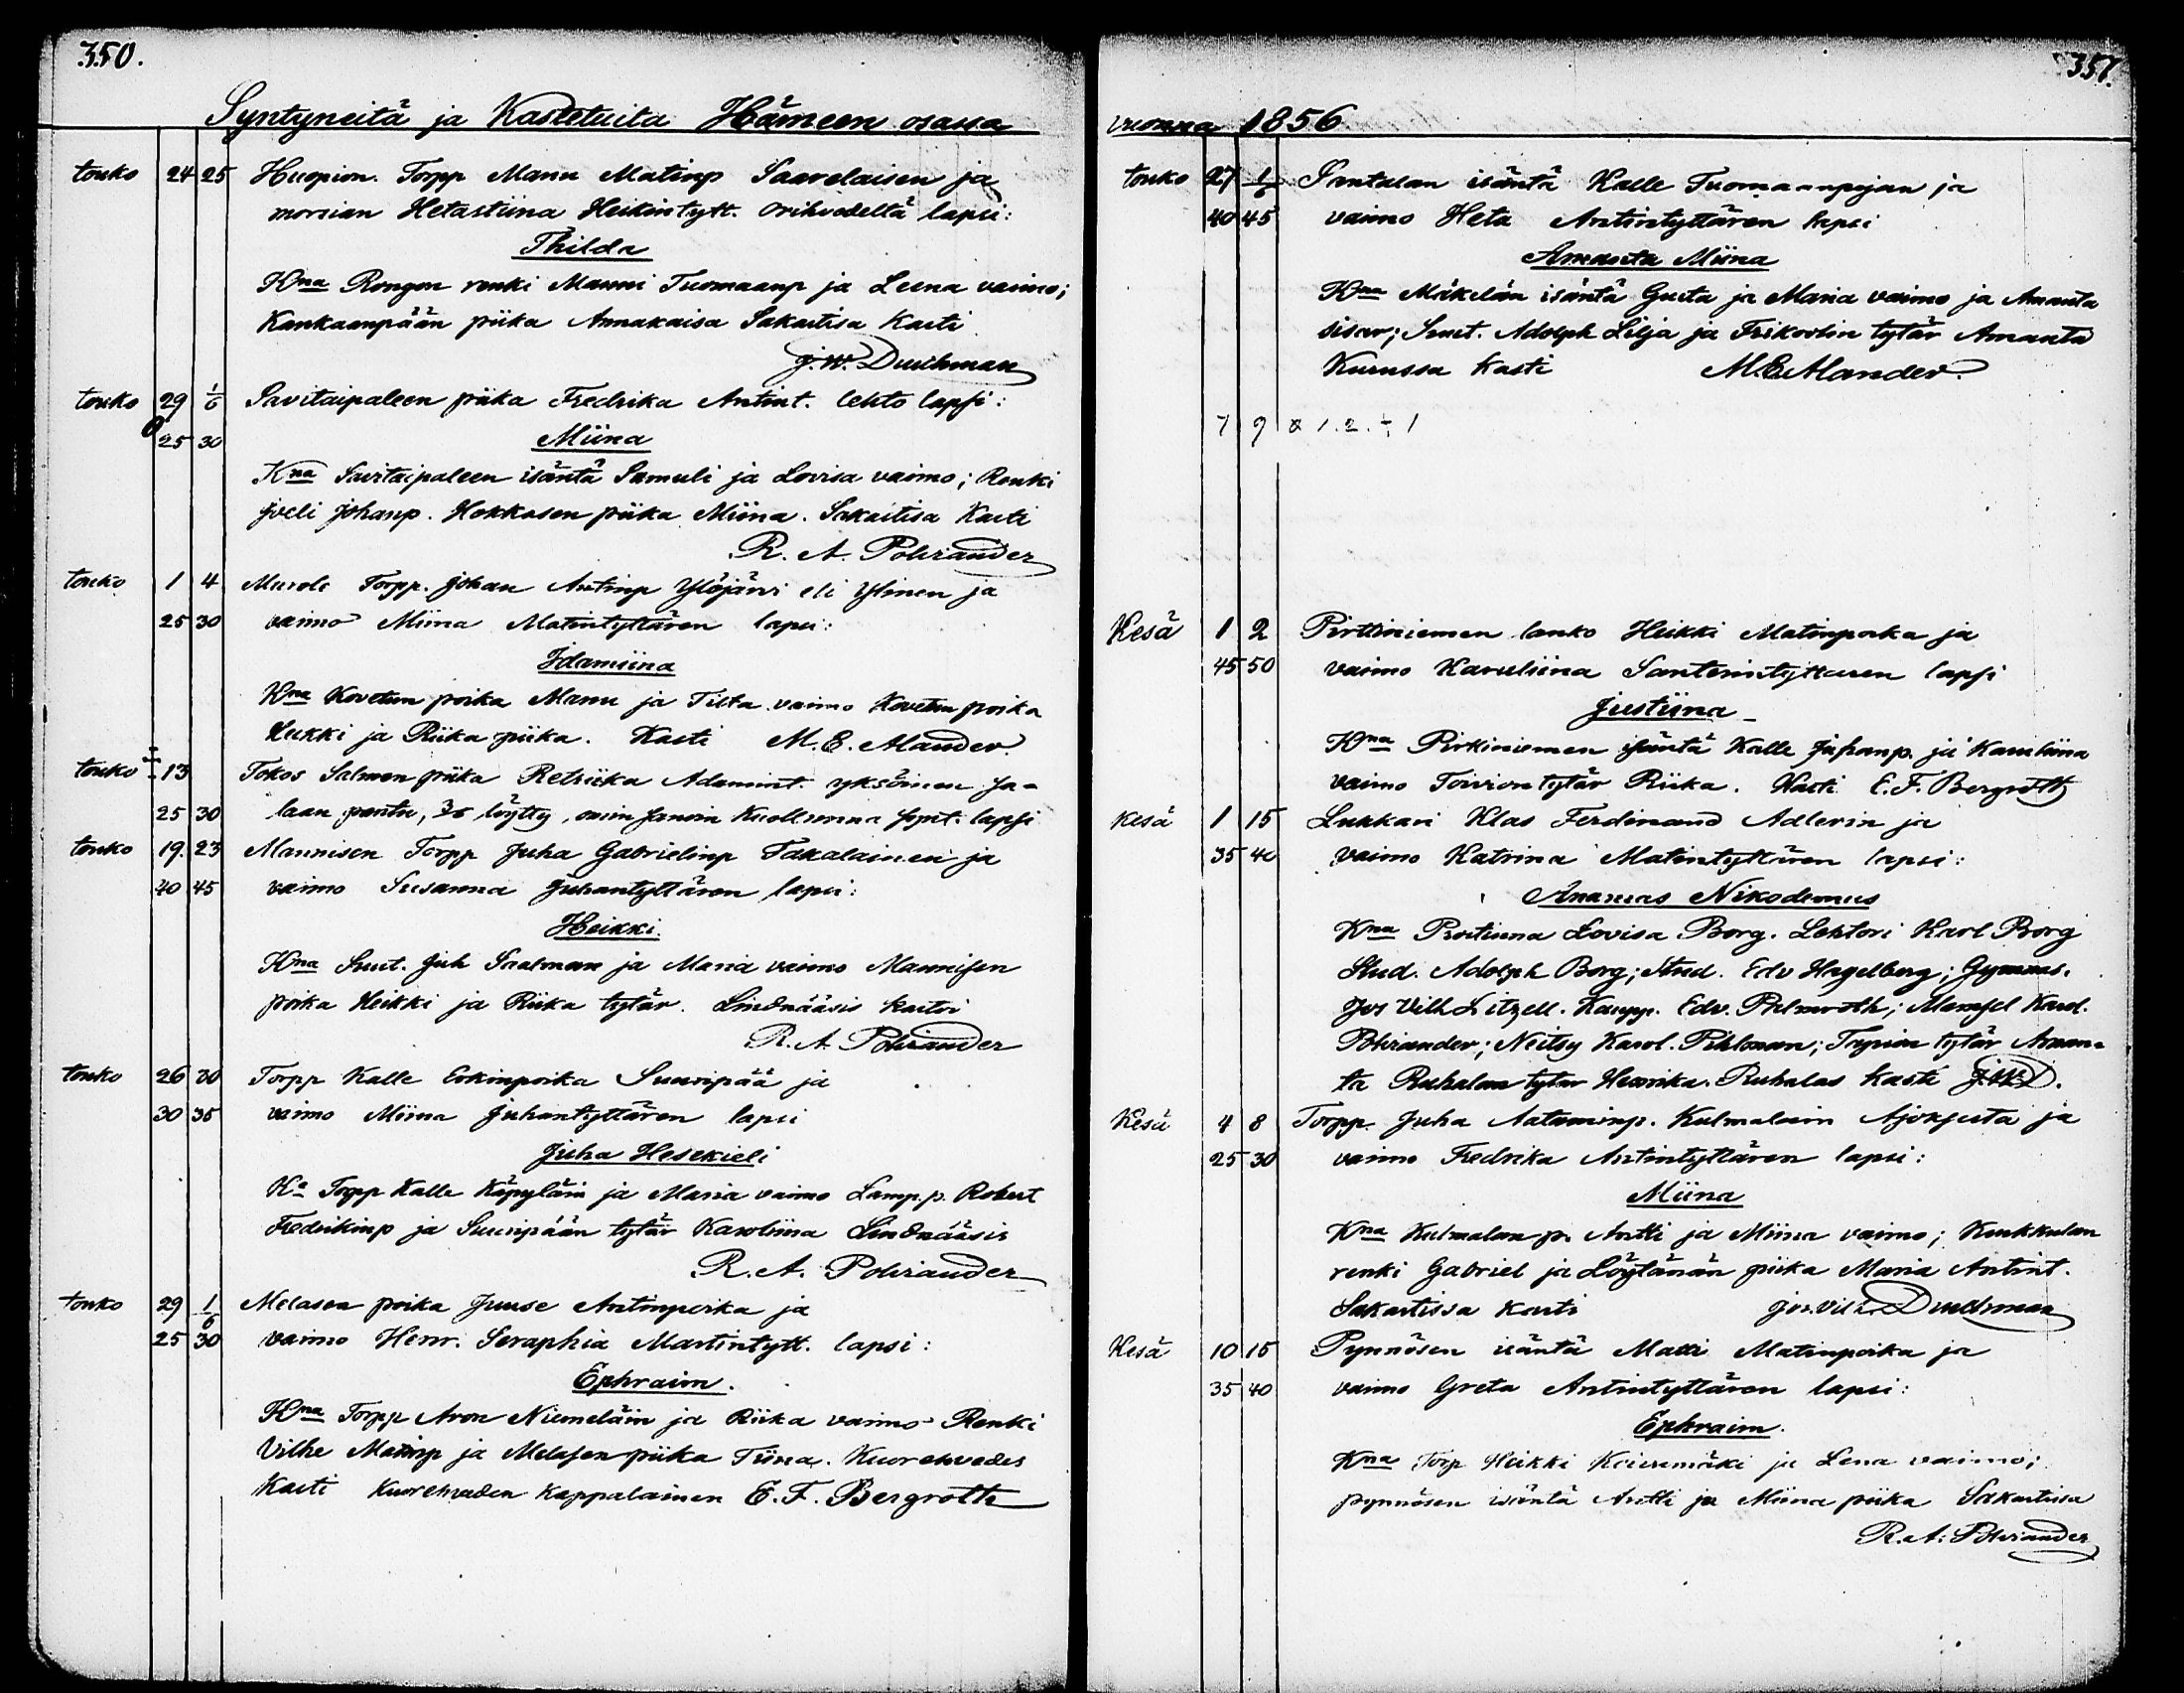 350.
Syntyneitä ja Kastetuita Hämeen osassa
touko 24 25 Huopion. Torpp Manu Matinp Saarelaisen ja
morsian Hetastiina Heikintytt. Orihvedeltä lapsi:
Thilda
Kna Rongon renki Manni Tuomaanp ja Leena vaimo;
Kankaanpään piika Annakaisa Sakastisa Kasti
J.W. Durchman
touko 29 1/6 Savitaipaleen piika Fredrika Antint. lehto lapsi:
25 30 Miina
Kna Savitaipaleen isäntä Samuli ja Lovisa vaimo; Renki
Joeli Johanp. Hokkasen piika Miina. Sakastisa Kasti
R. A. Polviander
touko 1 4 Murole Torpp. Johan Antinp Ylöjärvi eli Ylinen ja
25 30 vaimo Miina Matintyttären lapsi:
Idamiina
Kna Kovetun poika Manu ja Tilta vaimo Kovetun poika
Kukki ja Riika piika. Kasti M. E. Alander.
touko 13 Tokos Salmen piika Retriika Adamint. yksöinen ja-
25 30 laan pantu, löytty, Kuolleena synt. lapsi
touko 19. 23 Mannisen Torpp Juha Gabrielinp Takalainen ja
40 45 vaimo Susanna Juhantyttären lapsi:
Heikki.
Kna Smit. Juh Saalman ja Maria vaimo Mannisen
poika Heikki ja Riika tytär. Lindnääsis kastoi
R. A. Polviander
touko 26 30 Torpp Kalle Erkinpoika Suuripää ja
30 35 vaimo Miina Juhantyttären lapsi
Juha Hesekieli
Kª Torpp Kalle Käpyläin ja Maria vaimo Lamp.p. Robert
Fredrikinp ja Suuripään tytär Karoliina Lindnääsis
R. A. Polviander
touko 29 1/6 Melasen poika Juuse Antinpoika ja
25 30 vaimo Henr. Seraphia Martintytt. lapsi:
Ephraim.
Kna Torpp Aron Niemeläin ja Riika vaimo Renki
Vilhe Matinp ja Melasen piika Tiina. Kuorehvedes
Kasti Kuorehveden Kappalainen E. F. Bergroth
351.
vuonna 1856.
touko 27 1/6 Santalan isäntä Kalle Tuomaanpojan ja
40 45 vaimo Heta Antintyttären lapsi
Amanta Miina
Kna Mäkelän isäntä Gusta ja Maria vaimo ja Amanta
sisar; Smit. Adolph Lilja ja Frikoolin tytär Amanta
Kurussa Kasti M. E. Alander.
7 9
Kesä 1 2 Pirttiniemen lanko Heikki Matinpoika ja
45 50 vaimo Karuliina Santerintyttären lapsi
Justiina
Kna Pirkiniemen isäntä Kalle Juhanp. ja Karuliina
vaimo Toivion tytär Riika. Kasti E. F. Bergroth
Kesä 1 15 Lukkari Klas Ferdinand Adlerin ja
35 40 vaimo Katrina Matintyttären lapsi:
Ananias Nikodemus
Kna Provtinna Lovisa Borg. Lehtori Karl Borg
Stud. Adolph Borg; Stud. Edv Hagelberg; Gymnas.
Jos Vilh Litzell. Kaupp. Edv. Palmroth; Mamsel Karol.
Polviander; Neitsy Karol. Pihlman; Tarpian tytär Aman-
ta Ruhalan tytär Henrika. Ruhalas kasti J.W.D.
Kesä 4 8 Torpp. Juha Aataminp. Kulmalain Ajokjusta ja
25 30 vaimo Fredrika Antintyttären lapsi:
Miina
Kna Kulmalan p. Antti ja Miina vaimo; Kukkulan
renki Gabriel ja Löytänän piika Maria Antint.
Sakastissa kasti Jos. Vilh. Durchman
Kesä 10 15 Pynnösen isäntä Matti Matinpoika ja
35 40 vaimo Greta Antintyttären lapsi:
Ephraim.
Kna Torp Heikki ja Lena vaimo;
pynnösen isäntä Antti ja Miina piika Sakastissa
R. A. Polviander